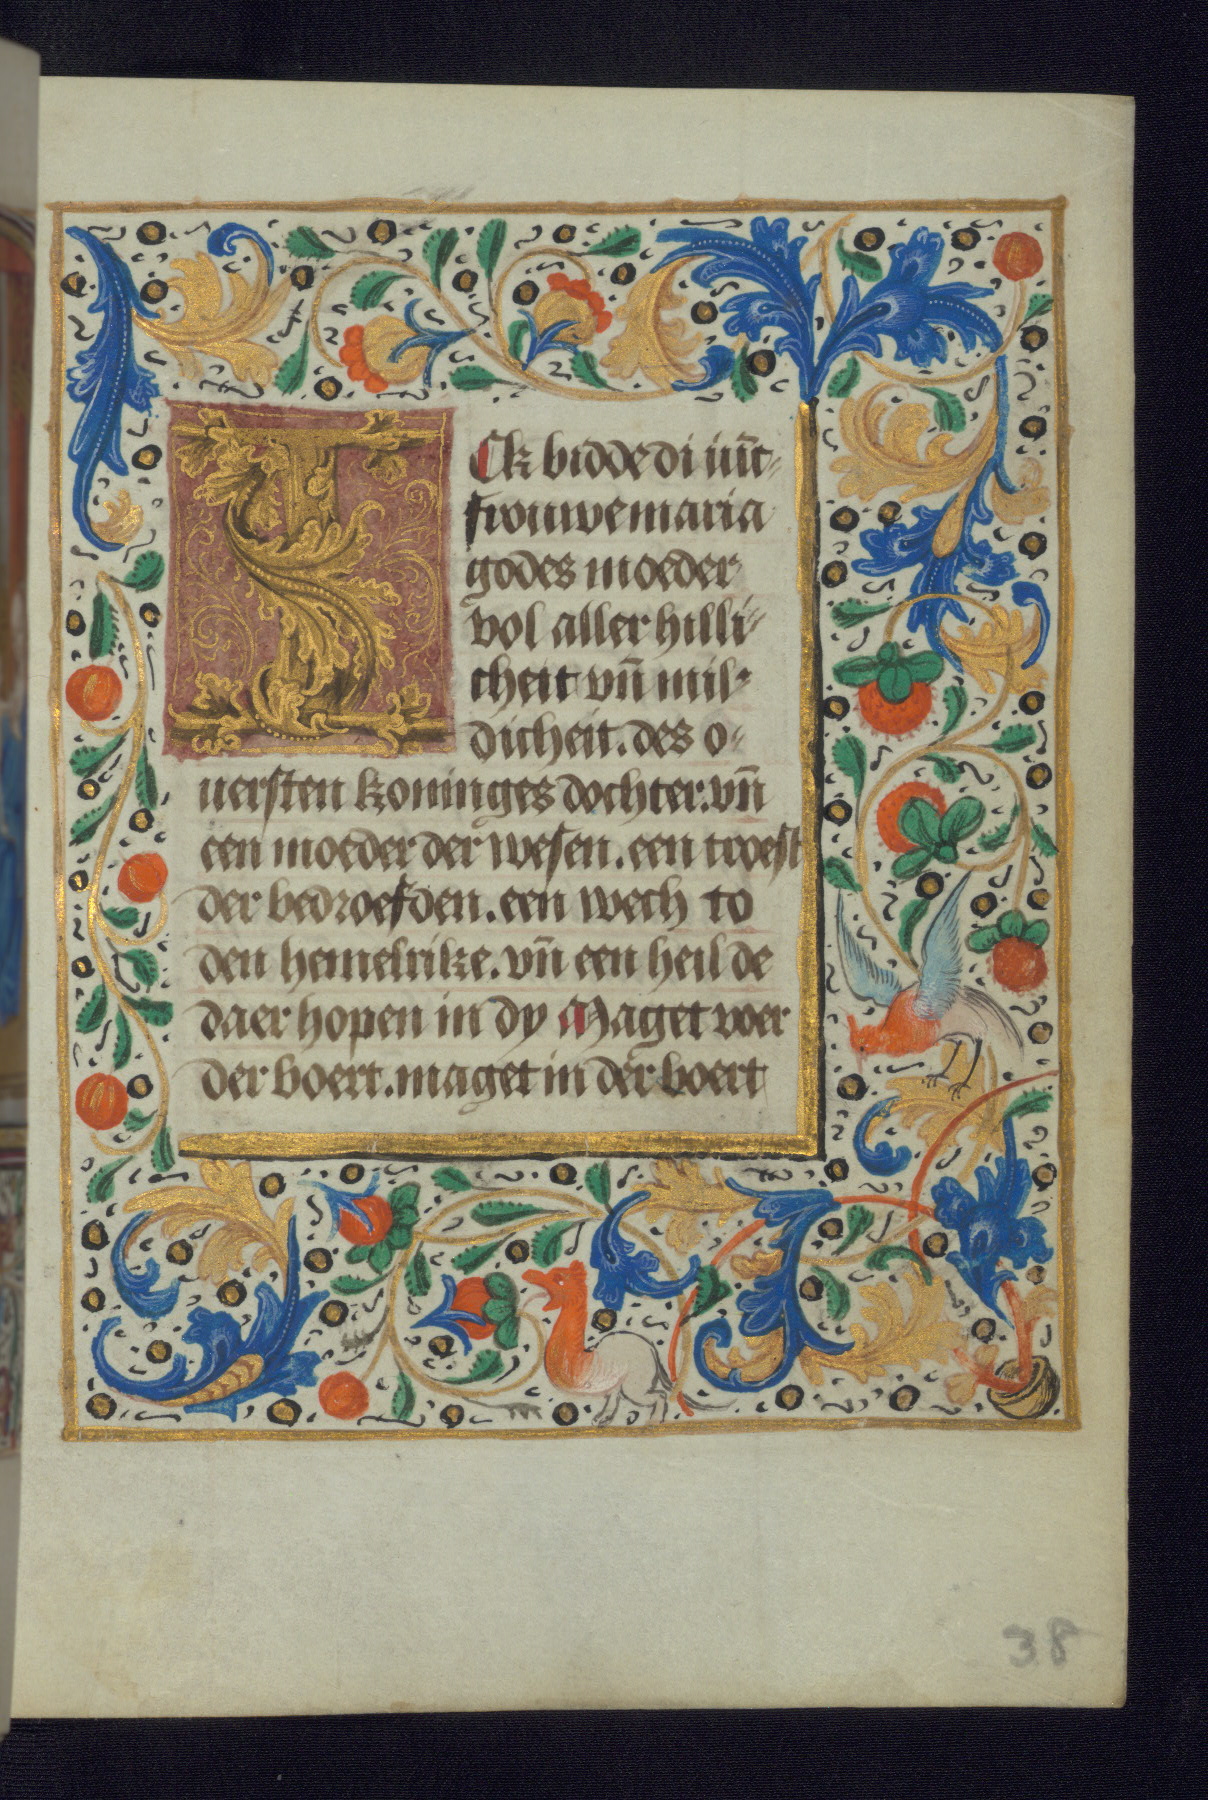 Ick bidde di iūc-
frouwe maria
godes moeder
vol aller hilli-
cheit vn̄ mil-
dicheit. des o-
uersten koninges dochter. vn̄
een moeder der wesen. een troest
der bedroefden. een wech to
den hemelrike. vn̄ een heil de
daer hopen in dy Maget voer
der boert. maget in der boert
38